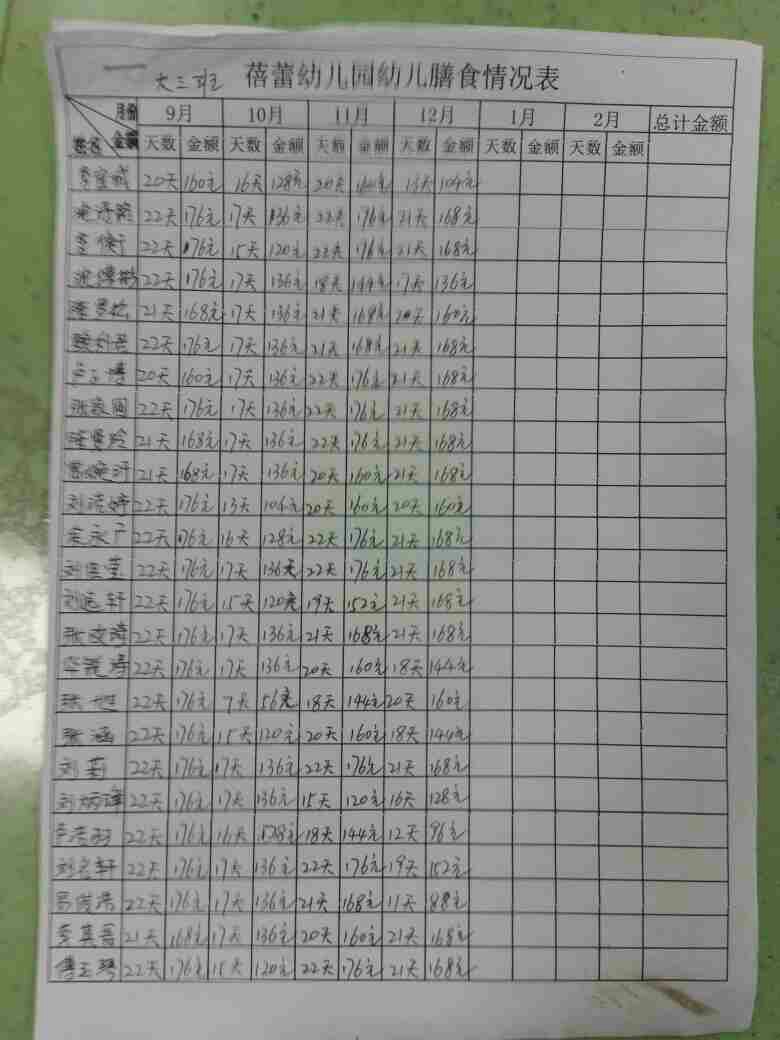 大三班 蓓蕾幼儿园幼儿膳食情况表
月份 9月 10月 11月 12月 1月 2月 总计金额
姓名 金额 天数 金额 天数 金额 天数 金额 天数 金额 天数 金额 天数 金额
20天 160元 16天 128元 20天 160元 13天 104元
22天 176元 17天 136元 22天 176元 21天 168元
22天 176元 15天 120元 22天 176元 21天 168元
22天 176元 17天 136元 18天 144元 17天 136元
21天 168元 17天 136元 21天 168元 20天 160元
22天 176元 17天 136元 21天 168元 21天 168元
20天 160元 17天 136元 22天 176元 21天 168元
22天 176元 17天 136元 22天 176元 21天 168元
21天 168元 17天 136元 22天 176元 21天 168元
21天 168元 17天 136元 20天 160元 21天 168元
刘 婷 22天 176元 13天 104元 20天 160元 20天 160元
22天 176元 16天 128元 22天 176元 21天 168元
刘 22天 176元 17天 136元 22天 176元 21天 168元
刘 轩 22天 176元 15天 120元 19天 152元 21天 168元
张 22天 176元 17天 136元 21天 168元 21天 168元
22天 176元 17天 136元 20天 160元 18天 144元
张 旭 22天 176元 7天 56元 18天 144元 20天 160元
张涵 22天 176元 15天 120元 20天 160元 18天 144元
刘莉 22天 176元 17天 136元 22天 176元 21天 168元
刘炳 22天 176元 17天 136元 15天 120元 16天 128元
22天 176元 16天 128元 18天 144元 12天 96元
刘名轩 22天 176元 17天 136元 22天 176元 19天 152元
吕俊浩 22天 176元 17天 136元 21天 168元 11天 88元
李 21天 168元 17天 136元 20天 160元 21天 168元
傅 22天 176元 15天 120元 22天 176元 21天 168元